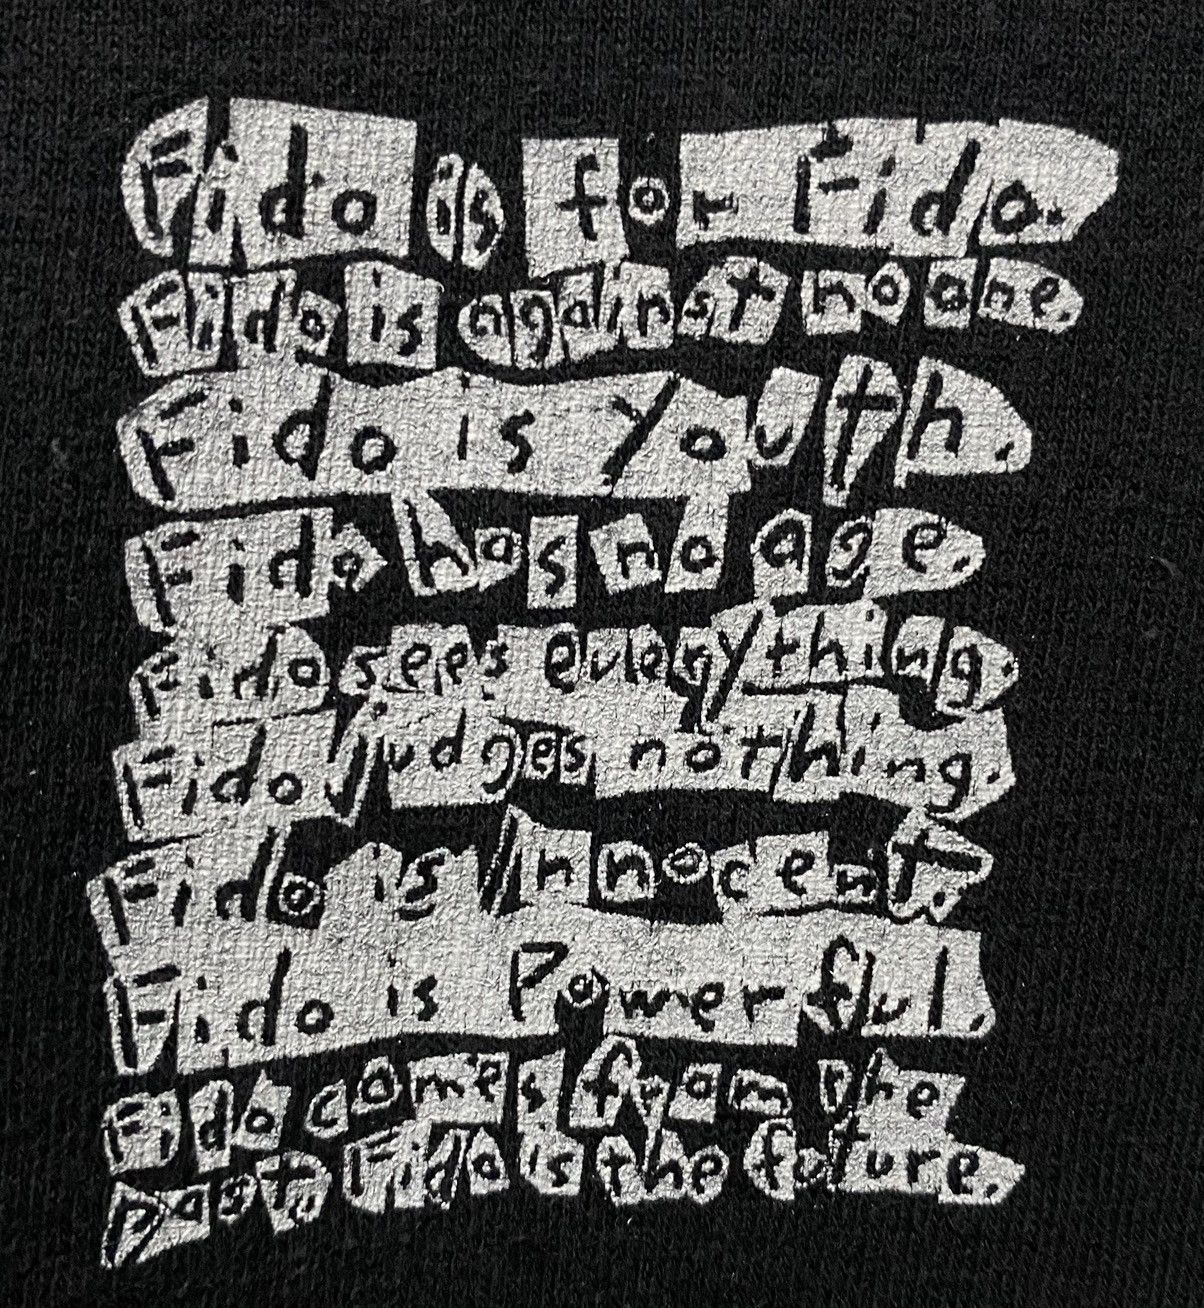 Fido is for Fido.
Fido is against no one.
Fido is Youth.
Fido has no age.
Fido sees everything.
Fido judges nothing.
Fido is Innocent.
Fido is Powerful.
Fido comes from the
past. Fido is the future.